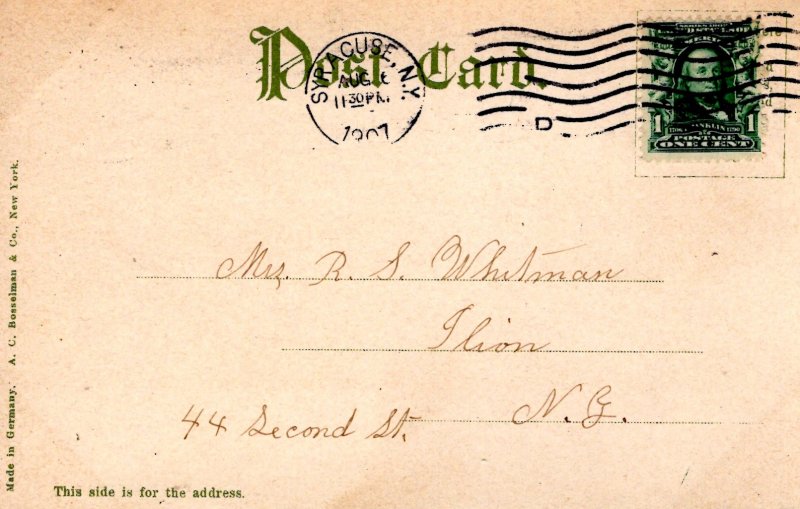 Post Card.
SYRACUSE, N.Y.
AUG 6
11 30 PM
1907
D
FRANKLIN
1 POSTAGE 1
ONE CENT
Mrs. R. S. Whitman
Ilion
N.Y.
44 Second St.
This side is for the address.
Made in Germany. A. C. Bosselman & Co., New York.